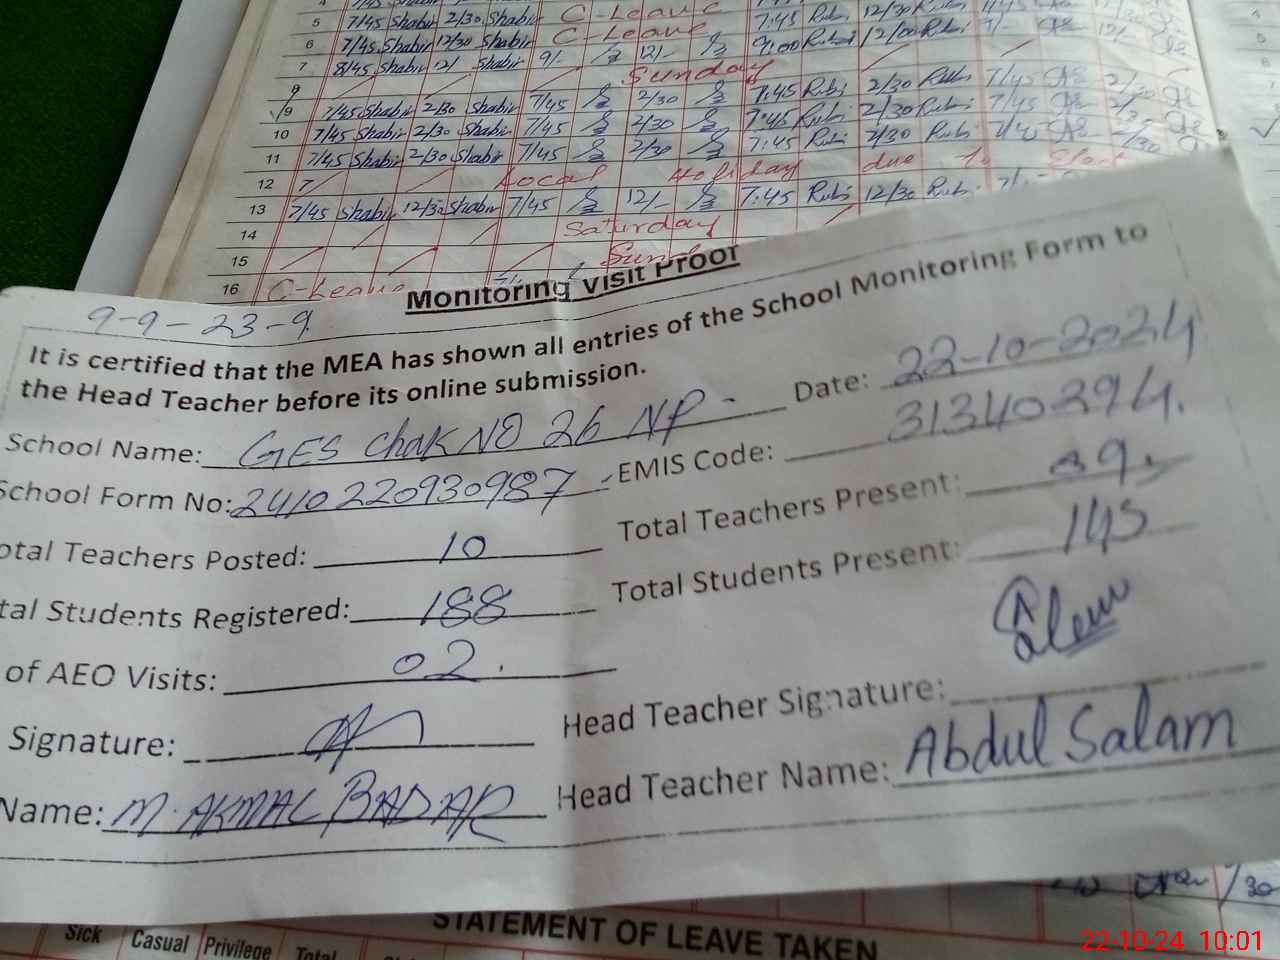 5 7/45 Shabir 2/30 Shabir C-Leave 7:45 Rubi 12/30 Rubi
6 7/45 Shabir 12/30 Shabir C-Leave 9:00 Rubi 12/00 Rubi
7 8/45 Shabir 12/ Shabir 9/- 12/-
8 Sunday
9 7/45 Shabir 2/30 Shabir 7/45 2/30 7:45 Rubi 2/30 Rubi 7/45 2/30
10 7/45 Shabir 2/30 Shabir 7/45 2/30 7:45 Rubi 2/30 Rubi 7/45
11 7/45 Shabir 2/30 Shabir 7/45 2/30 7:45 Rubi 2/30 Rubi 2/30
12 Local Holiday due to
13 7/45 Shabir 12/30 Shabir 7/45 12/- 7:45 Rubi 12/30 Rubi
14 Saturday
15
16 C-Leave
Monitoring Visit Proof
9-9-23-9
It is certified that the MEA has shown all entries of the School Monitoring Form to
the Head Teacher before its online submission.
School Name: GES Chak NO 26 NP Date: 22-10-2024
School Form No: 2410220930987 EMIS Code: 31340394
Total Teachers Posted: 10 Total Teachers Present: 09
Total Students Registered: 188 Total Students Present: 145
of AEO Visits: 02
Signature: Head Teacher Signature:
Name: M. AKMAL BADAR Head Teacher Name: Abdul Salam
STATEMENT OF LEAVE TAKEN
Sick Casual Privilege Total
22-10-24 10:01